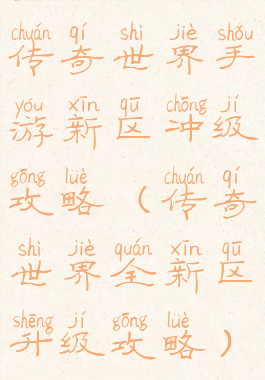 chuán qí shì jiè shǒu
传奇世界手
yóu xīn qū chōng jí
游新区冲级
gōng lüè chuán qí
攻略（传奇
shì jiè quán xīn qū
世界全新区
shēng jí gōng lüè
升级攻略）